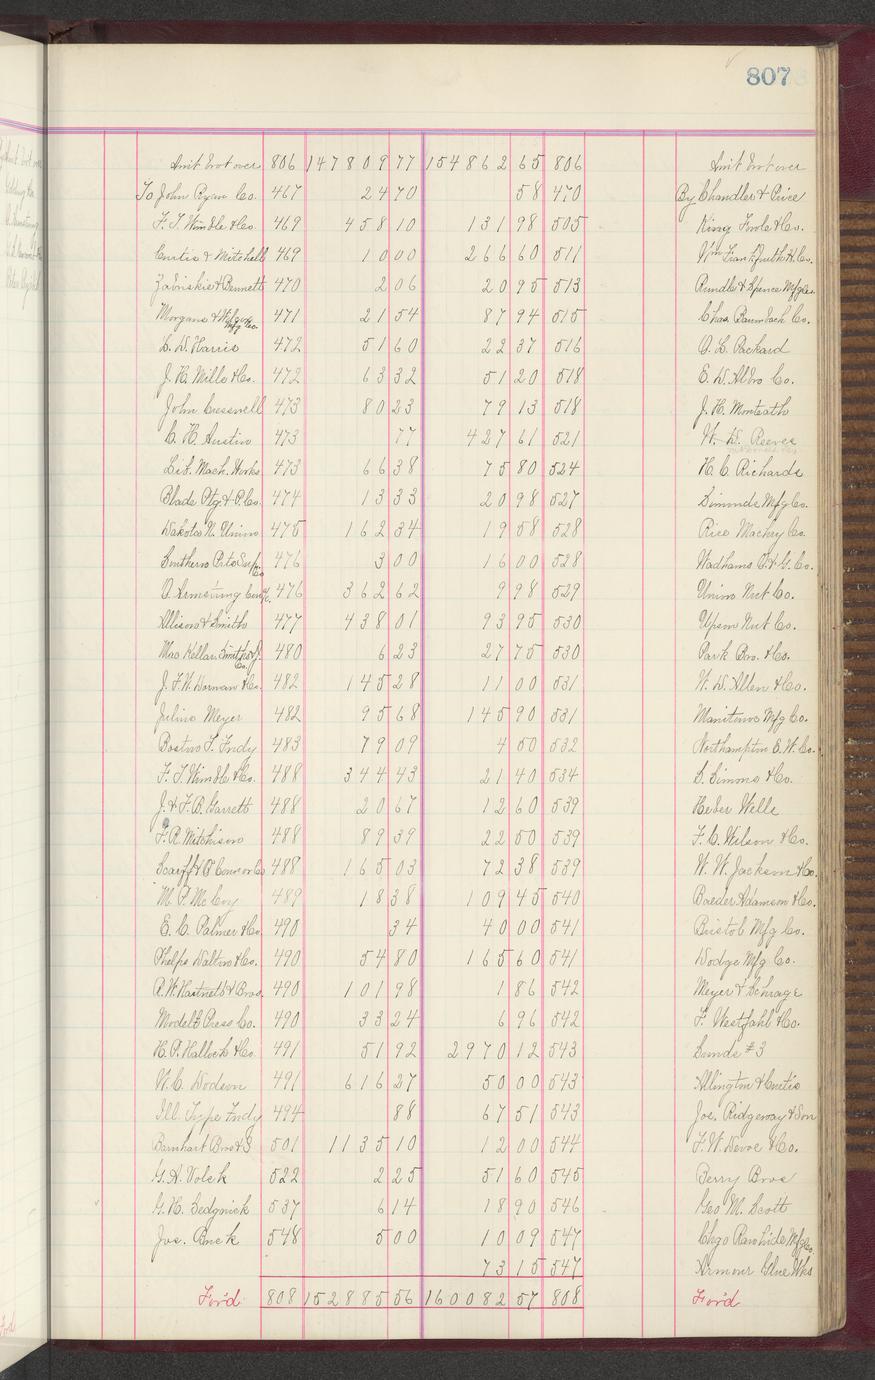 807
Amt brot over 806 147809 77 154862 65 806 Amt brot over
To John Ryan Co. 467 24 70 58 470 By Chandler & Price
F. T. Wimble & Co. 469 458 10 131 98 505 King Fowle & Co.
Curtis & Mitchell 469 10 00 266 60 511 Wm H. Co.
Zabriskie & Bennett 470 2 06 20 95 513 Rundle & Spence Mfg Co.
Morgans & Mfg Co. 471 21 54 87 94 515 Chas. Baumbach Co.
C. W. Harris 472 51 60 22 37 516 O. L. Packard
J. H. Mills & Co. 472 63 32 51 20 518 E. D. Albro Co.
John Cresswell 473 80 23 79 13 518 J. H. Monteath
C. H. Austin 473 77 427 61 521 W. W. Reeves
Lib. Mach. Works 473 66 38 75 80 524 H. C. Richards
Blade Ptg. & P. Co. 474 13 33 20 98 527 Simonds Mfg Co.
Dakota N. Union 475 162 34 19 58 528 Rice Machry Co.
Southern Prtrs Sup. Co 476 3 00 16 00 528 Wadhams O. & G. Co.
O. Armstrong 476 362 62 9 98 529 Union Nut Co.
Allison & Smith 477 438 01 93 95 530 Upson Nut Co.
MacKellar, Smiths & J. Co. 480 6 23 27 75 530 Park Bro. & Co.
J. F. W. Dorman & Co. 482 145 28 11 00 531 W. D. Allen & Co.
Julius Meyer 482 95 68 145 90 531 Manitowoc Mfg Co.
Boston T. Fndy 483 79 09 4 50 532 Northampton E. W. Co.
F. T. Wimble & Co. 488 344 43 21 40 534 S. Simons & Co.
J. & F. B. Garrett 488 20 67 12 60 539 Heber Wells
F. R. Mitchison 488 89 39 22 50 539 F. C. Wilson & Co.
Scarff & O'Connor Co 488 165 03 72 38 539 W. W. Jackson & Co.
M. P. McCoy 489 18 38 109 45 540 Baeder Adamson & Co.
E. C. Palmer & Co. 490 34 40 00 541 Bristol Mfg Co.
Phelps Dalton & Co. 490 54 80 165 60 541 Dodge Mfg Co.
R. W. Hartnett & Bros. 490 101 98 1 86 542 Meyer & Schrage
Model Press Co. 490 33 24 6 96 542 F. Westfahl & Co.
H. P. Hallock & Co. 491 51 92 2970 12 543 Sunds #3
W. C. Dodson 491 616 27 50 00 543 Allington & Curtis
Ill. Type Fndy 494 88 67 51 543 Jos. Ridgeway & Son
Barnhart Bros & S 501 1135 10 12 00 544 F. W. Devoe & Co.
G. A. Volck 522 2 25 51 60 545 Berry Bros
G. H. Sedgwick 537 6 14 18 90 546 Geo M. Scott
Jos. Buck 548 5 00 10 09 547 Chgo Rawhide Mfg Co.
73 15 547 Armour Glue Wks
For'd 808 152885 56 160082 57 808 For'd